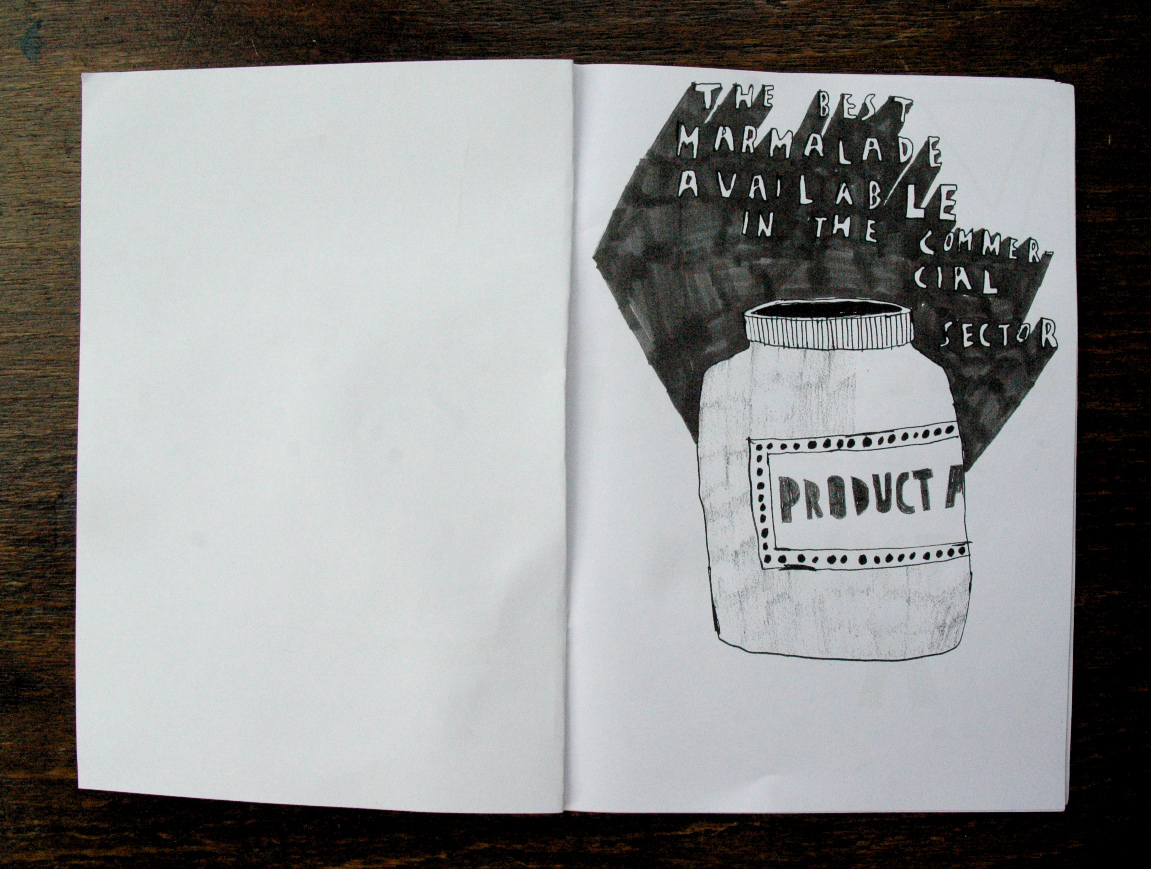 THE BEST
MARMALADE
AVAILABLE
IN THE
COMMER-
CIAL
SECTOR
PRODUCT A